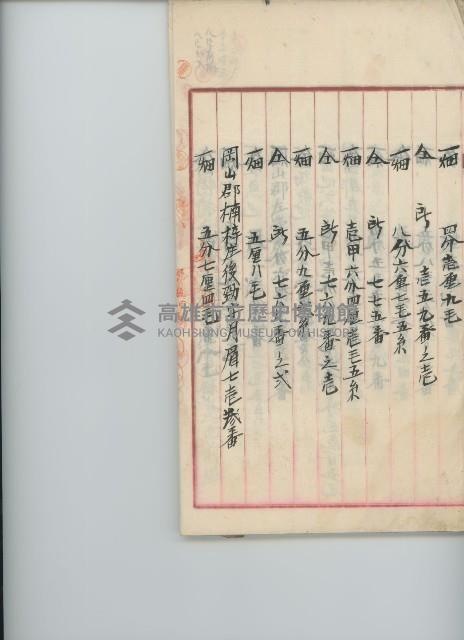 一畑 四分壱厘九毛
仝 所 壱五九番之壱
一畑 八分六厘七毛五糸
仝 所 七七五番
一畑 壱甲六分四厘壱毛五糸
仝 所 七六九番之壱
一畑 五分九厘
仝 所 七六八番之弍
一畑 五厘八毛
岡山郡楠梓庄後勁字月眉七壱参番
一畑 五分七厘四毛
高雄市立歷史博物館
KAOHSIUNG MUSEUM OF HISTORY